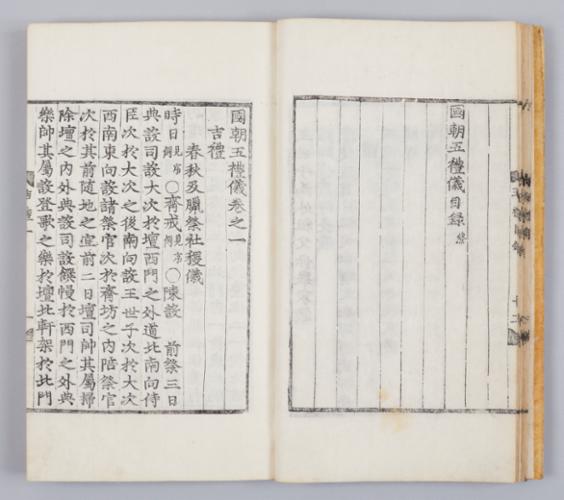 國朝五禮儀目錄 終
國朝五禮儀卷之一
吉禮
春秋及臘祭社稷儀
時日見序例○齊戒見序例○陳設 前祭三日
典設司設大次於壇西門之外道北南向侍
臣次於大次之後南向設王世子次於大次
西南東向設諸祭官次於齊坊之內陪祭官
次於其前隨地之宜前二日壇司帥其屬掃
除壇之內外典設司設饌幔於西門之外典
樂帥其屬設登歌之樂於壇北軒架於北門